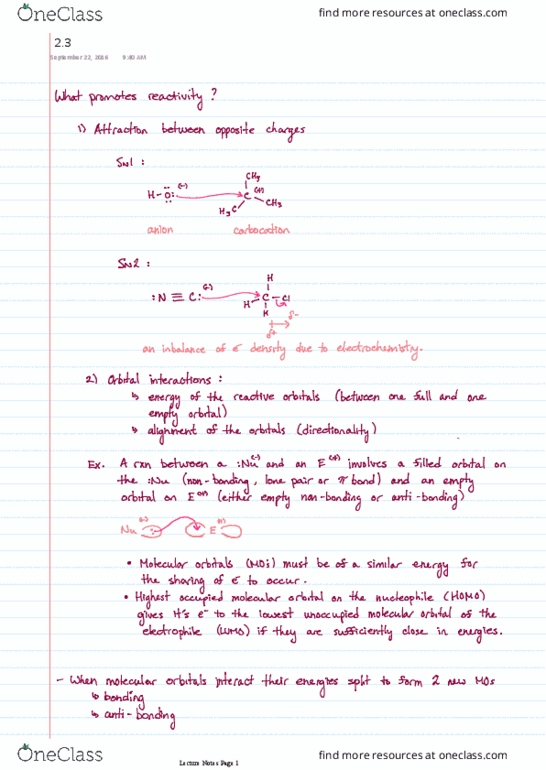 OneClass find more resources at oneclass.com
2.3
September 22, 2016 9:40 AM
What promotes reactivity?
1) Attraction between opposite charges
SN1 :
CH3
H-O: (-) C (+) CH3
H3C
anion carbocation
SN2 :
H
:N ≡ C: (-) H C Cl
H δ-
δ+
an inbalance of e- density due to electrochemistry.
2) Orbital interactions :
↳ energy of the reactive orbitals (between one full and one
empty orbital)
↳ alignment of the orbitals (directionality)
Ex. A rxn between a :Nu(-) and an E(+) involves a filled orbital on
the :Nu (non-bonding, lone pair or π bond) and an empty
orbital on E(+) (either empty non-bonding or anti-bonding)
Nu (-) E (+)
• Molecular orbitals (MOs) must be of a similar energy for
the sharing of e- to occur.
• Highest occupied molecular orbital on the nucleophile (HOMO)
gives it's e- to the lowest unoccupied molecular orbital of the
electrophile (LUMO) if they are sufficiently close in energies.
- When molecular orbitals interact their energies split to form 2 new MOs
↳ bonding
↳ anti-bonding
Lecture Notes Page 1
OneClass find more resources at oneclass.com